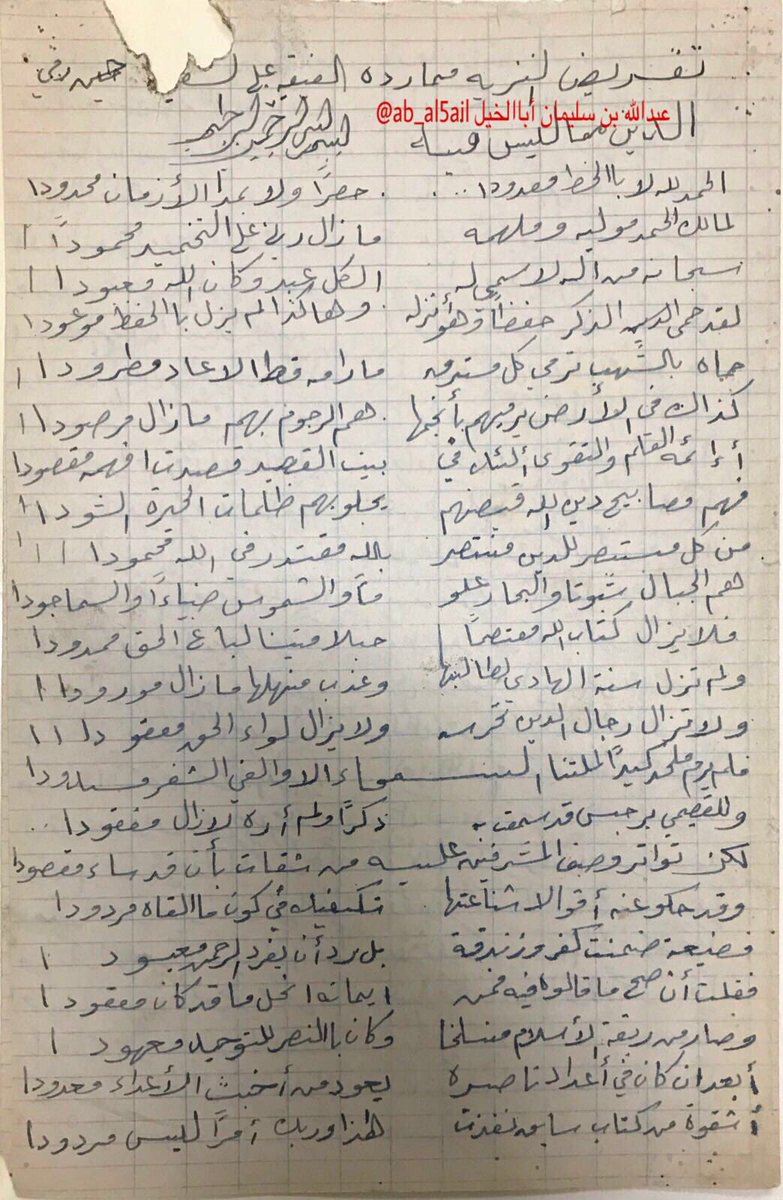 تقريض لتنزيه مما رده الفقيه على السفيه حسين رمي
عبدالله بن سليمان أبا الخيل ab_al5ail@
الدين مما ليس فيه بسم الله الرحمن الرحيم
الحمد لله لا بالخط معدودا حصرًا ولا بمدا الأزمان محدودا
لمالك الحمد موليه وملهمه مازال ربي على التحميد محمودًا
سبحانه من اله لا سمي له الكل عبد وكان الله معبودا
لقد حمى الدين الذكر حفظًا وهو أنزله وهاكذا لم يزل بالحفظ موعودا
حماه بالشهب ترمي كل مسترق مارامه قط الا عاد مطرودا
كذاك في الأرض يرميهم بأنجمها هم الرجوم بهم مازال مرصودا
أإئمة العلم والتقوى ألئك في بيت القصيد قصيدتا فهمه مقصودا
فهم مصابيح دين الله قيضهم يجلو بهم ظلمات الحيرة السودا
من كل مستنصر للدين منتصر بالله مقتدر في الله محمودا
هم الجبال ثبوتا والبحار علو مًا والشموس ضياءًا والسما جودا
فلا يزال كتاب الله معتصمًا حبلا متينا لباغ الحق ممدودا
ولم تزل سنة الهادي لطالبها وعذب منهلها مازال مورودا
ولا تزال رجال الدين تحرسه ولا يزال لواء الحق معقودا
فلم يرم ملحد كيدًا لملتنا السمحاء الا والفي الثغر مسدودا
وللقصيمي برجس قد سمعت به ذكرًا ولم أره لازال مفقودا
لكن تواتر وصف المشرفين عليه من ثقات بأن قد ساء مقصودا
وقد حكو عنه أقوالا شناعتها تكفيك في كون ما القاه مردودا
فضيعة ضمنت كفر وزندقة بل رد أن يفرد الرحمن معبودا
فقلت أن صح ما قالوه فيه فمن ايمانه انحل ما قد كان معقودا
وصار من ربقة الأسلام منسلخا وكان بالنصر للتوحيد معهودا
أبعد ان كان في أعداد ناصره يعود من أخبث الأعداء معدودا
أشقوة من كتاب سابق نفذت هذا وربك أمرًا ليس مردودا